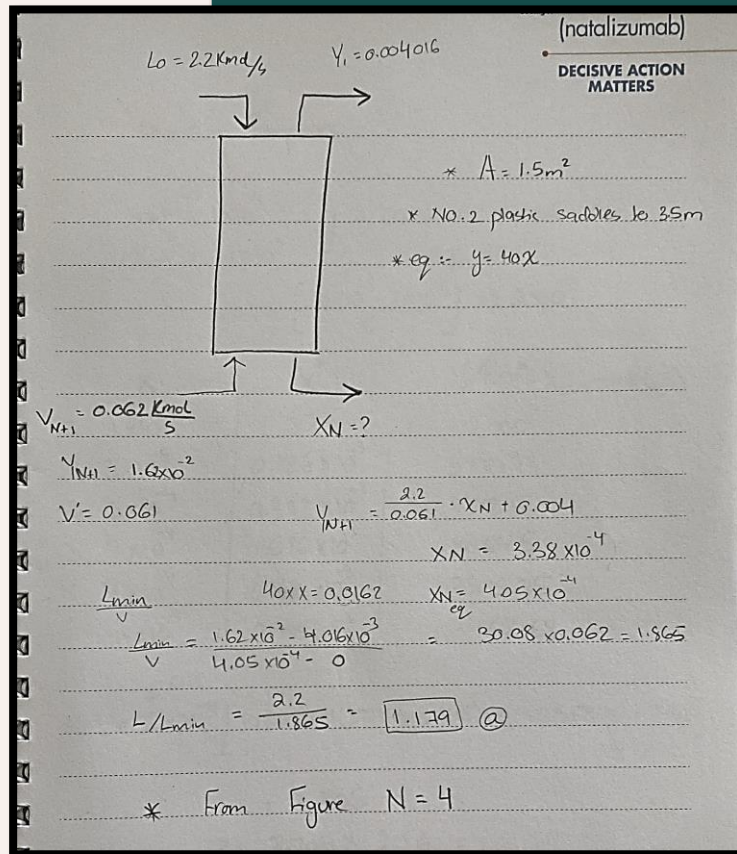 (natalizumab)
DECISIVE ACTION
MATTERS
L0 = 2.2 Kmol/s
Y1 = 0.004016
* A = 1.5m²
* NO. 2 plastic saddles to 3.5m
* eq :- y = 40x
V_{N+1} = 0.062 Kmol/s
X_N = ?
Y_{N+1} = 1.62x10⁻²
V' = 0.061
Y_{N+1} = 2.2/0.061 · X_N + 0.004
X_N = 3.38 x10⁻⁴
Lmin/V
40 x X = 0.0162
X_N eq = 4.05 x10⁻⁴
Lmin/V = (1.62 x10⁻² - 4.016x10⁻³)/(4.05 x10⁻⁴ - 0) = 30.08 x 0.062 = 1.865
L/Lmin = 2.2/1.865 = 1.179 ⓐ
* From Figure N = 4